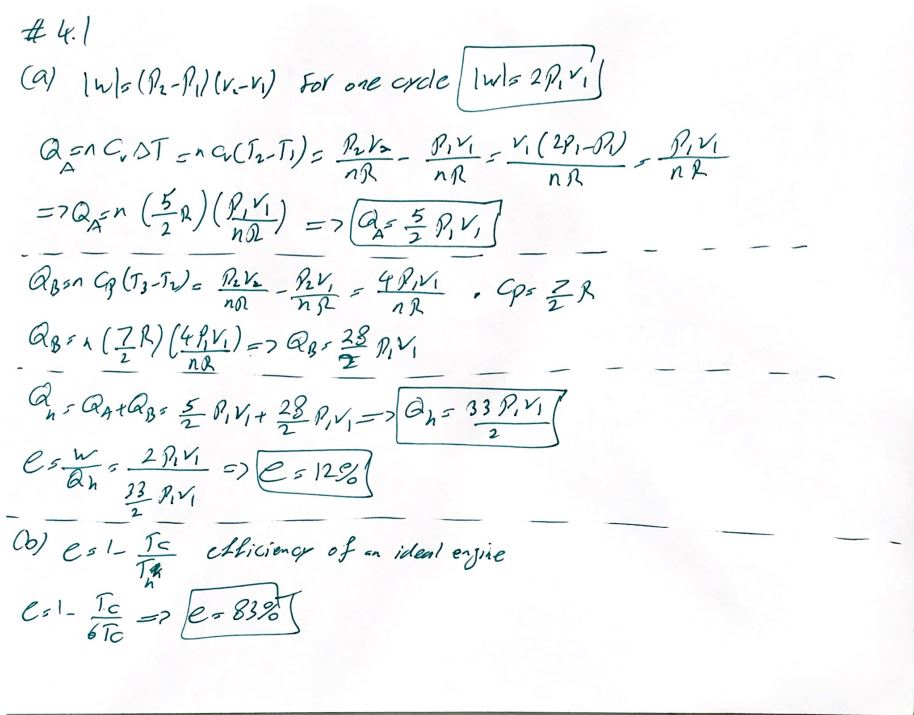 # 4.1
(a) |W|=(P₂-P₁)(V₂-V₁) For one cycle |W|= 2P₁V₁
Q_A=n Cᵥ ΔT = n Cᵥ(T₂-T₁) = P₂V₂/nR - P₁V₁/nR = V₁(2P₁-P₁)/nR = P₁V₁/nR
=> Q_A=n (5/2 R)(P₁V₁/nR) => Q_A= 5/2 P₁V₁
Q_B=n C_P(T₃-T₂)= P₂V₂/nR - P₂V₁/nR = 4P₁V₁/nR . Cp= 7/2 R
Q_B=n (7/2 R)(4P₁V₁/nR) => Q_B= 28/2 P₁V₁
Q_h = Q_A+Q_B= 5/2 P₁V₁ + 28/2 P₁V₁ => Q_h = 33 P₁V₁/2
e= W/Q_h = 2P₁V₁/(33/2 P₁V₁) => e = 12%
(b) e=1- Tc/T_h efficiency of an ideal engine
e=1- Tc/6Tc => e= 83%